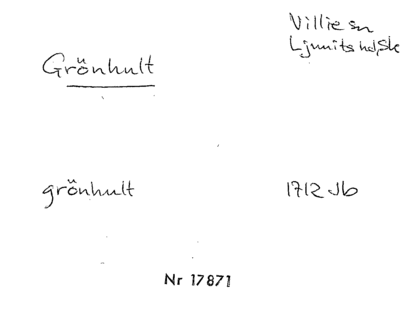 Villie sn
Ljunits hd, Sk
Grönhult
grönhult 1712 Jb
Nr 17871